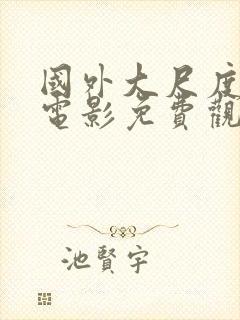 國外大尺度
電影免費觀
池賢宇